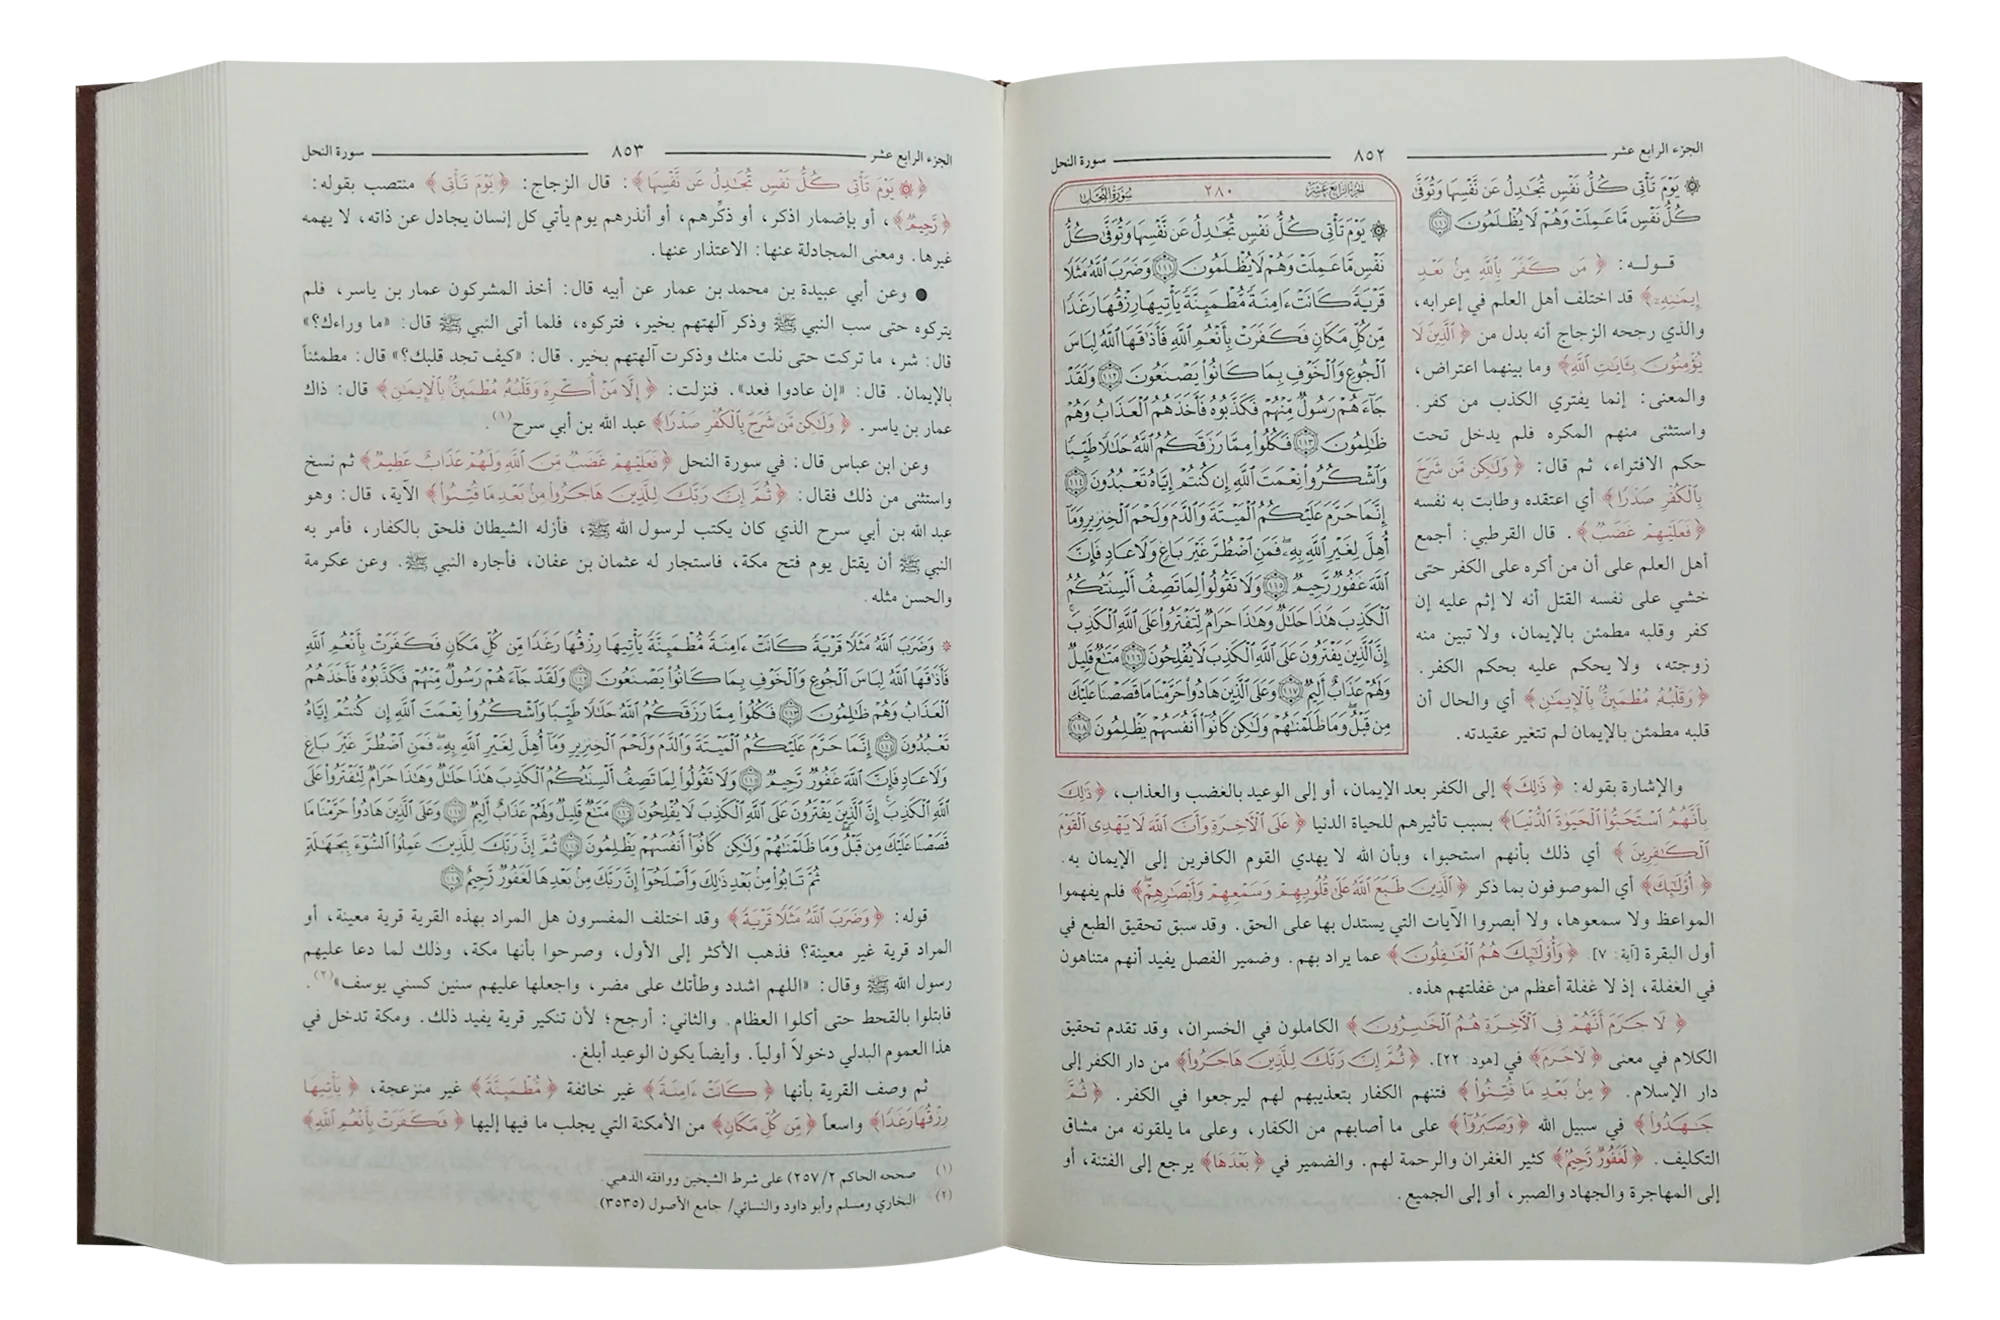 الجزء الرابع عشر ٨٥٢ سورة النحل
۞ يَوْمَ تَأْتِى كُلُّ نَفْسٍ تُجَٰدِلُ عَن نَّفْسِهَا وَتُوَفَّىٰ
كُلُّ نَفْسٍ مَّا عَمِلَتْ وَهُمْ لَا يُظْلَمُونَ ﴿١١١﴾
قوله: ﴿ مَن كَفَرَ بِٱللَّهِ مِنۢ بَعْدِ
إِيمَٰنِهِۦٓ ﴾ قد اختلف أهل العلم في إعرابه،
والذي رجحه الزجاج أنه بدل من ﴿ ٱلَّذِينَ لَا
يُؤْمِنُونَ بِـَٔايَٰتِ ٱللَّهِ ﴾ وما بينهما اعتراض،
والمعنى: إنما يفتري الكذب من كفر.
واستثنى منهم المكره فلم يدخل تحت
حكم الافتراء، ثم قال: ﴿ وَلَٰكِن مَّن شَرَحَ
بِٱلْكُفْرِ صَدْرًا ﴾ أي اعتقده وطابت به نفسه
﴿ فَعَلَيْهِمْ غَضَبٌ ﴾. قال القرطبي: أجمع
أهل العلم على أن من أكره على الكفر حتى
خشي على نفسه القتل أنه لا إثم عليه إن
كفر وقلبه مطمئن بالإيمان، ولا تبين منه
زوجته، ولا يحكم عليه بحكم الكفر.
﴿ وَقَلْبُهُۥ مُطْمَئِنٌّۢ بِٱلْإِيمَٰنِ ﴾ أي والحال أن
قلبه مطمئن بالإيمان لم تتغير عقيدته.
الجزء الرابع عشر ٢٨٠ سورة النحل
۞ يَوْمَ تَأْتِى كُلُّ نَفْسٍ تُجَٰدِلُ عَن نَّفْسِهَا وَتُوَفَّىٰ كُلُّ
نَفْسٍ مَّا عَمِلَتْ وَهُمْ لَا يُظْلَمُونَ ﴿١١١﴾ وَضَرَبَ ٱللَّهُ مَثَلًا
قَرْيَةً كَانَتْ ءَامِنَةً مُّطْمَئِنَّةً يَأْتِيهَا رِزْقُهَا رَغَدًا
مِّن كُلِّ مَكَانٍ فَكَفَرَتْ بِأَنْعُمِ ٱللَّهِ فَأَذَٰقَهَا ٱللَّهُ لِبَاسَ
ٱلْجُوعِ وَٱلْخَوْفِ بِمَا كَانُوا۟ يَصْنَعُونَ ﴿١١٢﴾ وَلَقَدْ
جَآءَهُمْ رَسُولٌ مِّنْهُمْ فَكَذَّبُوهُ فَأَخَذَهُمُ ٱلْعَذَابُ وَهُمْ
ظَٰلِمُونَ ﴿١١٣﴾ فَكُلُوا۟ مِمَّا رَزَقَكُمُ ٱللَّهُ حَلَٰلًا طَيِّبًا
وَٱشْكُرُوا۟ نِعْمَتَ ٱللَّهِ إِن كُنتُمْ إِيَّاهُ تَعْبُدُونَ ﴿١١٤﴾
إِنَّمَا حَرَّمَ عَلَيْكُمُ ٱلْمَيْتَةَ وَٱلدَّمَ وَلَحْمَ ٱلْخِنزِيرِ وَمَآ
أُهِلَّ لِغَيْرِ ٱللَّهِ بِهِۦ ۖ فَمَنِ ٱضْطُرَّ غَيْرَ بَاغٍ وَلَا عَادٍ فَإِنَّ
ٱللَّهَ غَفُورٌ رَّحِيمٌ ﴿١١٥﴾ وَلَا تَقُولُوا۟ لِمَا تَصِفُ أَلْسِنَتُكُمُ
ٱلْكَذِبَ هَٰذَا حَلَٰلٌ وَهَٰذَا حَرَامٌ لِّتَفْتَرُوا۟ عَلَى ٱللَّهِ ٱلْكَذِبَ ۚ
إِنَّ ٱلَّذِينَ يَفْتَرُونَ عَلَى ٱللَّهِ ٱلْكَذِبَ لَا يُفْلِحُونَ ﴿١١٦﴾ مَتَٰعٌ قَلِيلٌ
وَلَهُمْ عَذَابٌ أَلِيمٌ ﴿١١٧﴾ وَعَلَى ٱلَّذِينَ هَادُوا۟ حَرَّمْنَا مَا قَصَصْنَا عَلَيْكَ
مِن قَبْلُ ۖ وَمَا ظَلَمْنَٰهُمْ وَلَٰكِن كَانُوٓا۟ أَنفُسَهُمْ يَظْلِمُونَ ﴿١١٨﴾
والإشارة بقوله: ﴿ ذَٰلِكَ ﴾ إلى الكفر بعد الإيمان، أو إلى الوعيد بالغضب والعذاب، ﴿ ذَٰلِكَ
بِأَنَّهُمُ ٱسْتَحَبُّوا۟ ٱلْحَيَوٰةَ ٱلدُّنْيَا ﴾ بسبب تأثيرهم للحياة الدنيا ﴿ عَلَى ٱلْءَاخِرَةِ وَأَنَّ ٱللَّهَ لَا يَهْدِى ٱلْقَوْمَ
ٱلْكَٰفِرِينَ ﴾ أي ذلك بأنهم استحبوا، وبأن الله لا يهدي القوم الكافرين إلى الإيمان به.
﴿ أُو۟لَٰٓئِكَ ﴾ أي الموصوفون بما ذكر ﴿ ٱلَّذِينَ طَبَعَ ٱللَّهُ عَلَىٰ قُلُوبِهِمْ وَسَمْعِهِمْ وَأَبْصَٰرِهِمْ ۖ ﴾ فلم يفهموا
المواعظ ولا سمعوها، ولا أبصروا الآيات التي يستدل بها على الحق. وقد سبق تحقيق الطبع في
أول البقرة [آية: ٧]. ﴿ وَأُو۟لَٰٓئِكَ هُمُ ٱلْغَٰفِلُونَ ﴾ عما يراد بهم. وضمير الفصل يفيد أنهم متناهون
في الغفلة، إذ لا غفلة أعظم من غفلتهم هذه.
﴿ لَا جَرَمَ أَنَّهُمْ فِى ٱلْءَاخِرَةِ هُمُ ٱلْخَٰسِرُونَ ﴾ الكاملون في الخسران، وقد تقدم تحقيق
الكلام في معنى ﴿ لَا جَرَمَ ﴾ في [هود: ٢٢]. ﴿ ثُمَّ إِنَّ رَبَّكَ لِلَّذِينَ هَاجَرُوا۟ ﴾ من دار الكفر إلى
دار الإسلام. ﴿ مِنۢ بَعْدِ مَا فُتِنُوا۟ ﴾ فتنهم الكفار بتعذيبهم لهم ليرجعوا في الكفر. ﴿ ثُمَّ
جَٰهَدُوا۟ ﴾ في سبيل الله ﴿ وَصَبَرُوٓا۟ ﴾ على ما أصابهم من الكفار، وعلى ما يلقونه من مشاق
التكليف. ﴿ لَغَفُورٌ رَّحِيمٌ ﴾ كثير الغفران والرحمة لهم. والضمير في ﴿ بَعْدِهَا ﴾ يرجع إلى الفتنة، أو
إلى المهاجرة والجهاد والصبر، أو إلى الجميع.
الجزء الرابع عشر ٨٥٣ سورة النحل
﴿ ۞ يَوْمَ تَأْتِى كُلُّ نَفْسٍ تُجَٰدِلُ عَن نَّفْسِهَا ﴾: قال الزجاج: ﴿ يَوْمَ تَأْتِى ﴾ منتصب بقوله:
﴿ رَّحِيمٌ ﴾، أو بإضمار اذكر، أو ذكِّرهم، أو أنذرهم يوم يأتي كل إنسان يجادل عن ذاته، لا يهمه
غيرها. ومعنى المجادلة عنها: الاعتذار عنها.
● وعن أبي عبيدة بن محمد بن عمار عن أبيه قال: أخذ المشركون عمار بن ياسر، فلم
يتركوه حتى سب النبي ﷺ وذكر آلهتهم بخير، فتركوه، فلما أتى النبي ﷺ قال: «ما وراءك؟»
قال: شر، ما تركت حتى نلت منك وذكرت آلهتهم بخير. قال: «كيف تجد قلبك؟» قال: مطمئناً
بالإيمان. قال: «إن عادوا فعد». فنزلت: ﴿ إِلَّا مَنْ أُكْرِهَ وَقَلْبُهُۥ مُطْمَئِنٌّۢ بِٱلْإِيمَٰنِ ﴾ قال: ذاك
عمار بن ياسر. ﴿ وَلَٰكِن مَّن شَرَحَ بِٱلْكُفْرِ صَدْرًا ﴾ عبد الله بن أبي سرح(١).
وعن ابن عباس قال: في سورة النحل ﴿ فَعَلَيْهِمْ غَضَبٌ مِّنَ ٱللَّهِ وَلَهُمْ عَذَابٌ عَظِيمٌ ﴾ ثم نسخ
واستثنى من ذلك فقال: ﴿ ثُمَّ إِنَّ رَبَّكَ لِلَّذِينَ هَاجَرُوا۟ مِنۢ بَعْدِ مَا فُتِنُوا۟ ﴾ الآية، قال: وهو
عبد الله بن أبي سرح الذي كان يكتب لرسول الله ﷺ، فأزله الشيطان فلحق بالكفار، فأمر به
النبي ﷺ أن يقتل يوم فتح مكة، فاستجار له عثمان بن عفان، فأجاره النبي ﷺ. وعن عكرمة
والحسن مثله.
* وَضَرَبَ ٱللَّهُ مَثَلًا قَرْيَةً كَانَتْ ءَامِنَةً مُّطْمَئِنَّةً يَأْتِيهَا رِزْقُهَا رَغَدًا مِّن كُلِّ مَكَانٍ فَكَفَرَتْ بِأَنْعُمِ ٱللَّهِ
فَأَذَٰقَهَا ٱللَّهُ لِبَاسَ ٱلْجُوعِ وَٱلْخَوْفِ بِمَا كَانُوا۟ يَصْنَعُونَ ﴿١١٢﴾ وَلَقَدْ جَآءَهُمْ رَسُولٌ مِّنْهُمْ فَكَذَّبُوهُ فَأَخَذَهُمُ
ٱلْعَذَابُ وَهُمْ ظَٰلِمُونَ ﴿١١٣﴾ فَكُلُوا۟ مِمَّا رَزَقَكُمُ ٱللَّهُ حَلَٰلًا طَيِّبًا وَٱشْكُرُوا۟ نِعْمَتَ ٱللَّهِ إِن كُنتُمْ إِيَّاهُ
تَعْبُدُونَ ﴿١١٤﴾ إِنَّمَا حَرَّمَ عَلَيْكُمُ ٱلْمَيْتَةَ وَٱلدَّمَ وَلَحْمَ ٱلْخِنزِيرِ وَمَآ أُهِلَّ لِغَيْرِ ٱللَّهِ بِهِۦ ۖ فَمَنِ ٱضْطُرَّ غَيْرَ بَاغٍ
وَلَا عَادٍ فَإِنَّ ٱللَّهَ غَفُورٌ رَّحِيمٌ ﴿١١٥﴾ وَلَا تَقُولُوا۟ لِمَا تَصِفُ أَلْسِنَتُكُمُ ٱلْكَذِبَ هَٰذَا حَلَٰلٌ وَهَٰذَا حَرَامٌ لِّتَفْتَرُوا۟ عَلَى
ٱللَّهِ ٱلْكَذِبَ ۚ إِنَّ ٱلَّذِينَ يَفْتَرُونَ عَلَى ٱللَّهِ ٱلْكَذِبَ لَا يُفْلِحُونَ ﴿١١٦﴾ مَتَٰعٌ قَلِيلٌ وَلَهُمْ عَذَابٌ أَلِيمٌ ﴿١١٧﴾ وَعَلَى ٱلَّذِينَ هَادُوا۟ حَرَّمْنَا مَا
قَصَصْنَا عَلَيْكَ مِن قَبْلُ ۖ وَمَا ظَلَمْنَٰهُمْ وَلَٰكِن كَانُوٓا۟ أَنفُسَهُمْ يَظْلِمُونَ ﴿١١٨﴾ ثُمَّ إِنَّ رَبَّكَ لِلَّذِينَ عَمِلُوا۟ ٱلسُّوٓءَ بِجَهَٰلَةٍ
ثُمَّ تَابُوا۟ مِنۢ بَعْدِ ذَٰلِكَ وَأَصْلَحُوٓا۟ إِنَّ رَبَّكَ مِنۢ بَعْدِهَا لَغَفُورٌ رَّحِيمٌ ﴿١١٩﴾
قوله: ﴿ وَضَرَبَ ٱللَّهُ مَثَلًا قَرْيَةً ﴾ وقد اختلف المفسرون هل المراد بهذه القرية قرية معينة، أو
المراد قرية غير معينة؟ فذهب الأكثر إلى الأول، وصرحوا بأنها مكة، وذلك لما دعا عليهم
رسول الله ﷺ وقال: «اللهم اشدد وطأتك على مضر، واجعلها عليهم سنين كسني يوسف»(٢).
فابتلوا بالقحط حتى أكلوا العظام. والثاني: أرجح؛ لأن تنكير قرية يفيد ذلك. ومكة تدخل في
هذا العموم البدلي دخولاً أولياً. وأيضاً يكون الوعيد أبلغ.
ثم وصف القرية بأنها ﴿ كَانَتْ ءَامِنَةً ﴾ غير خائفة ﴿ مُّطْمَئِنَّةً ﴾ غير منزعجة، ﴿ يَأْتِيهَا
رِزْقُهَا رَغَدًا ﴾ واسعاً ﴿ مِّن كُلِّ مَكَانٍ ﴾ من الأمكنة التي يجلب ما فيها إليها ﴿ فَكَفَرَتْ بِأَنْعُمِ ٱللَّهِ ﴾
(١) صححه الحاكم ٢/ ٢٥٧) على شرط الشيخين ووافقه الذهبي.
(٢) البخاري ومسلم وأبو داود والنسائي/ جامع الأصول (٣٥٣٥)